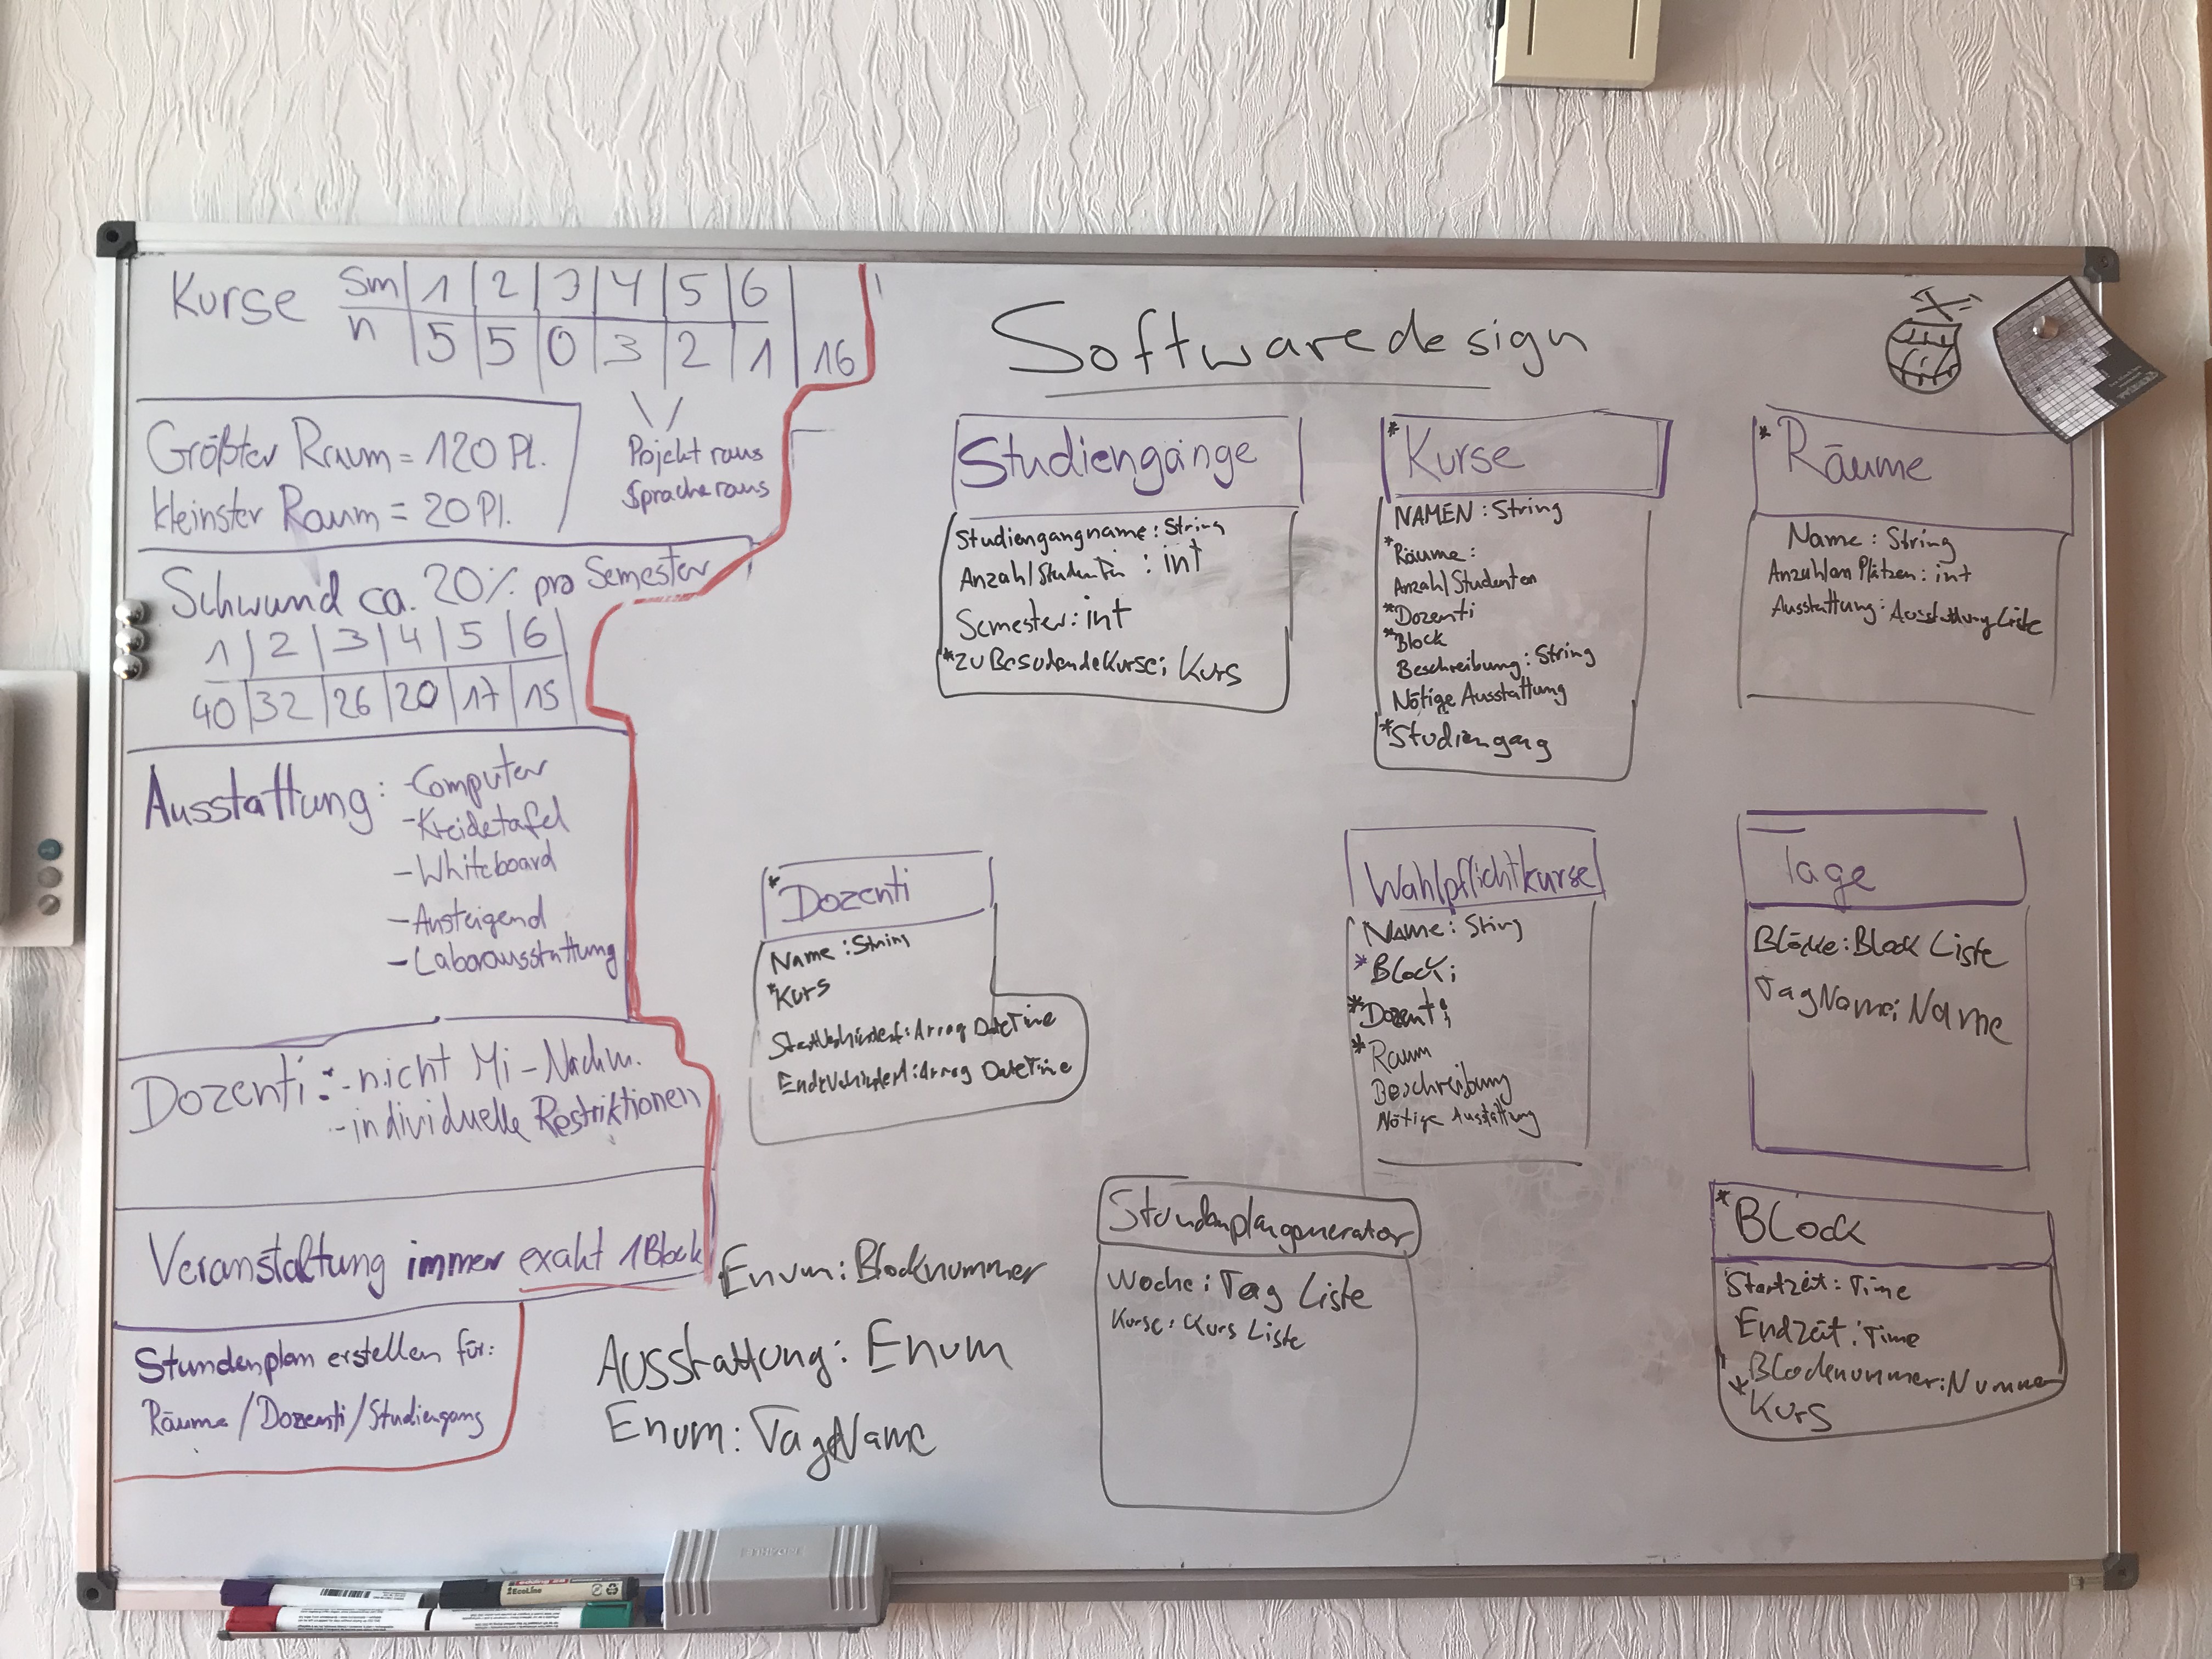 Kurse
Sm 1 2 3 4 5 6
n 5 5 0 3 2 1 16
Projekt raus
Sprache raus
Größter Raum = 120 Pl.
kleinster Raum = 20 Pl.
Schwund ca. 20% pro Semester
1 2 3 4 5 6
40 32 26 20 17 15
Ausstattung: - Computer
- Kreidetafel
- Whiteboard
- Ansteigend
- Laborausstattung
Dozenti: - nicht Mi-Nachm.
- individuelle Restriktionen
Veranstaltung immer exakt 1 Block
Stundenplan erstellen für:
Räume / Dozenti / Studiengang
Softwaredesign
Studiengänge
Studiengangname: String
Anzahl Studenti: int
Semester: int
*zu Besuchende Kurse: Kurs
*Kurse
NAMEN: String
*Räume:
Anzahl Studenten
*Dozenti
*Block
Beschreibung: String
Nötige Ausstattung
*Studiengang
*Räume
Name: String
Anzahl an Plätzen: int
Ausstattung: Ausstattung Liste
*Dozenti
Name: String
*Kurs
StartVerhindert: Array DateTime
EndeVerhindert: Array DateTime
Wahlpflichtkurse
Name: String
*Block:
*Dozenti:
*Raum
Beschreibung
Nötige Ausstattung
Tage
Blöcke: Block Liste
TagName: Name
Stundenplangenerator
Woche: Tag Liste
Kurse: Kurs Liste
*Block
Startzeit: Time
Endzeit: Time
Blocknummer: Nummer
*Kurs
Enum: Blocknummer
Ausstattung: Enum
Enum: TagName
EcoLine